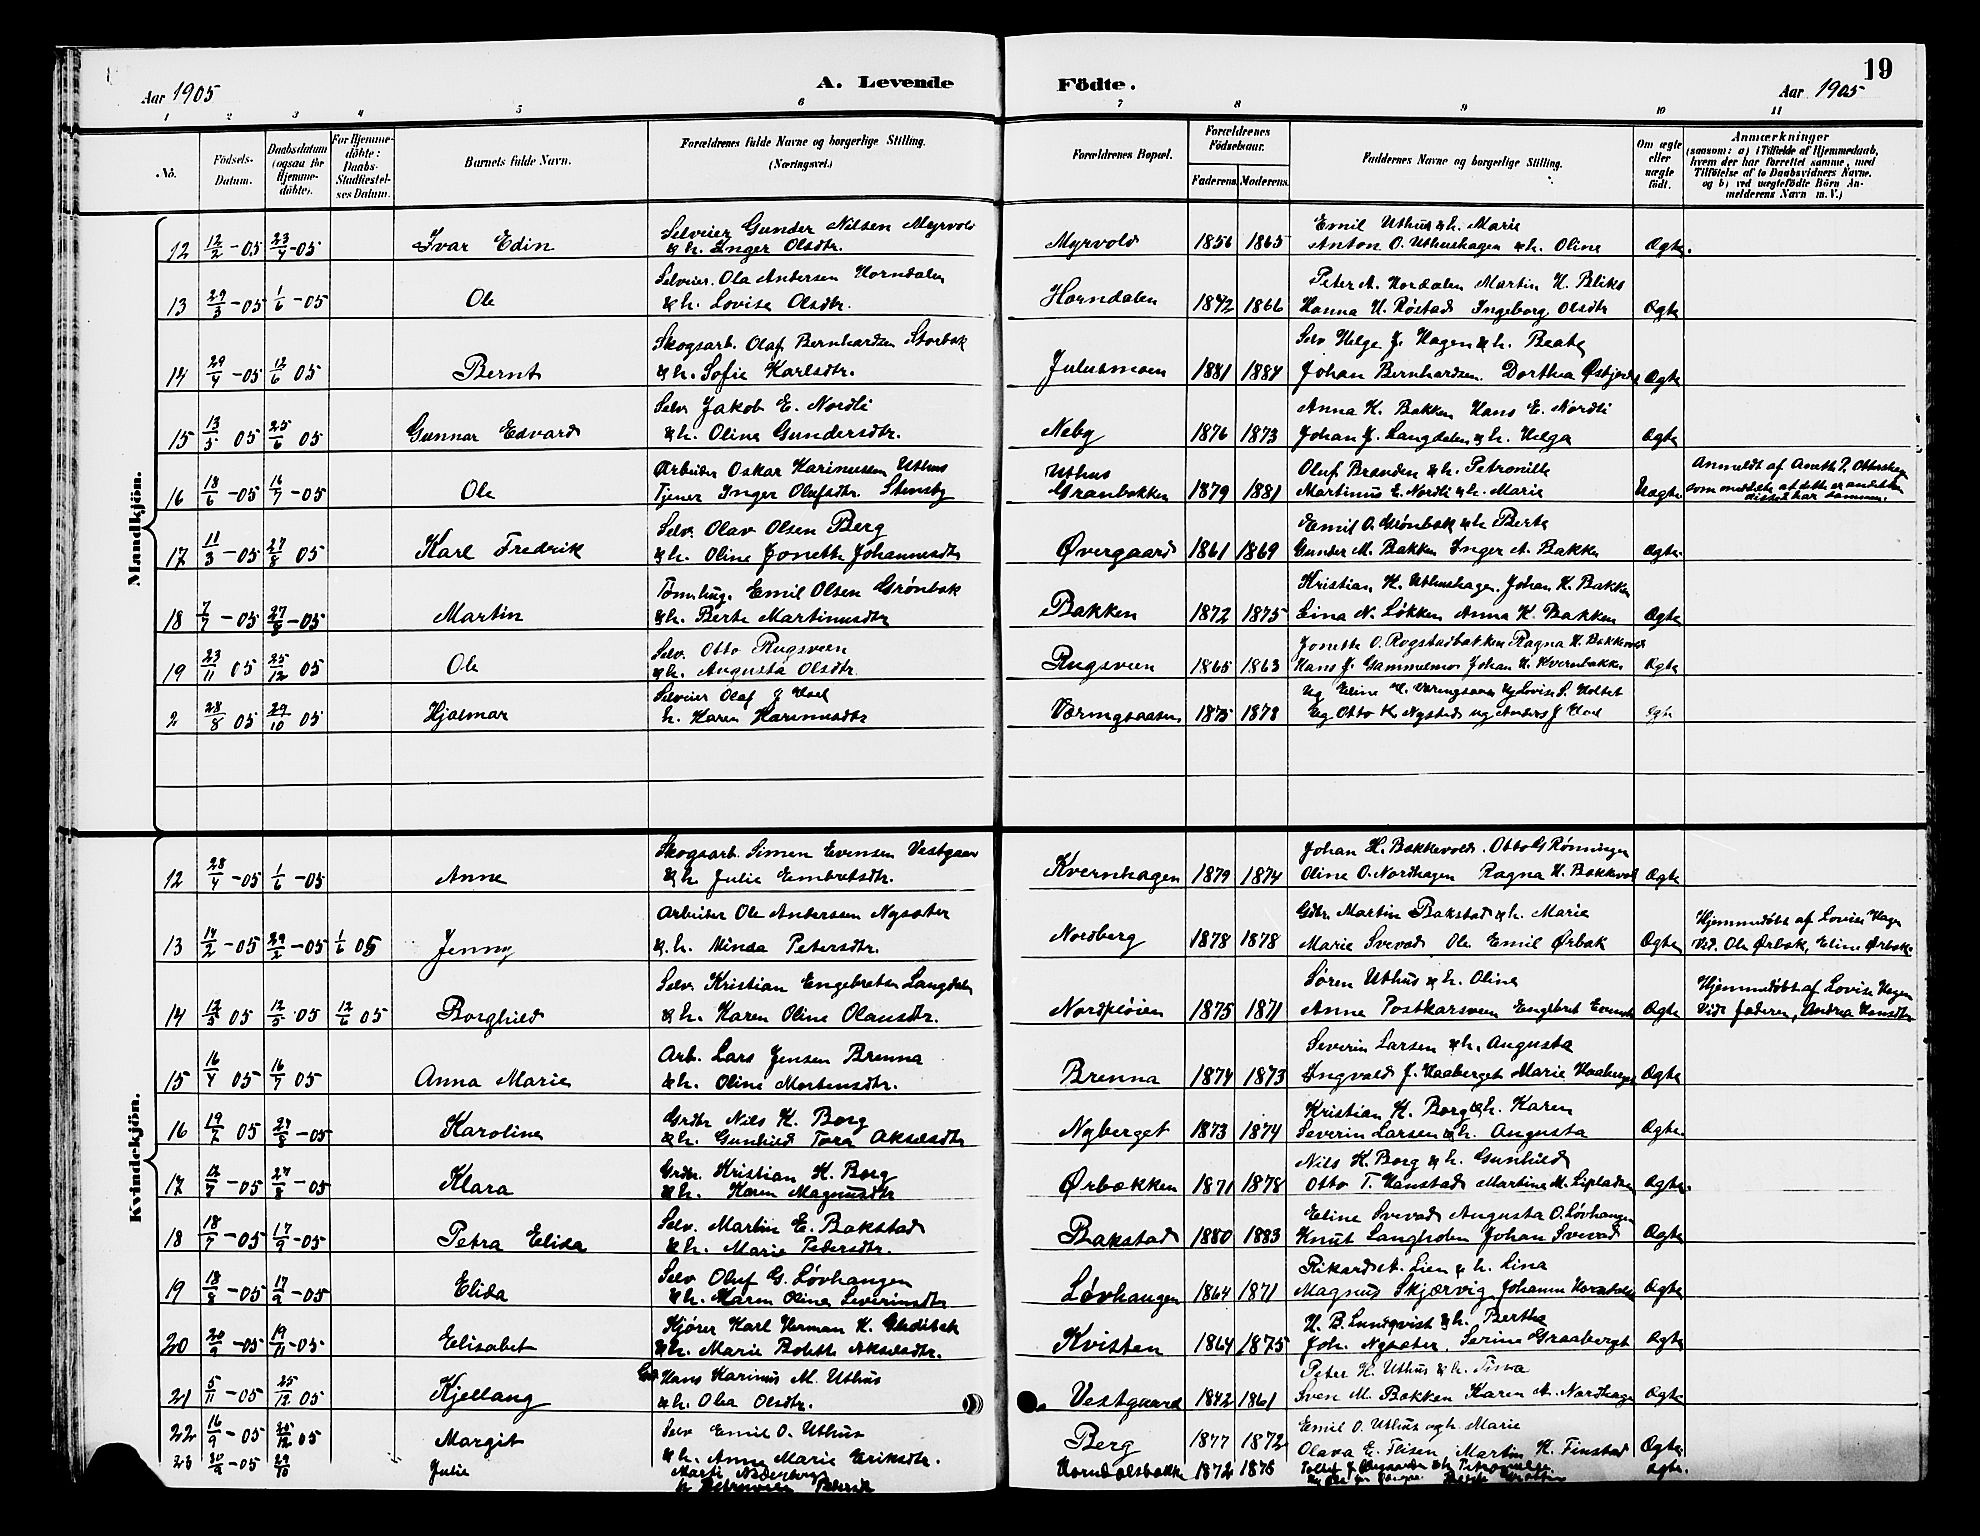 19
Aar 1905 A. Levende Födte. Aar 1905
1 2 3 4 5 6 7 8 9 10 11
No.
Födsels-Datum.
Daabsdatum (ogsaa for Hjemme-döbte).
For Hjemme-döbte: Daabs-Stadfæstel-ses Datum.
Barnets fulde Navn.
Forældrenes fulde Navne og borgerlige Stilling. (Næringsvei.)
Forældrenes Bopæl.
Forældrenes Födselsaar.
Faderens. Moderens.
Faddernes Navne og borgerlige Stilling.
Om ægte eller uægte födt.
Anmærkninger
(saasom: a) i Tilfælde af Hjemmedaab, hvem der har forrettet samme, med Tilföielse af to Daabsvidners Navne, og b) ved uægtefödte Börn An-melderens Navn m. V.)
Mandkjön.
Selveier Gunder Nilsen Myrvold Emil Uthus & h. Marie
12 12/2 -05 23/4 -05 Ivar Edin & h. Inger Olsdtr. Myrvold 1856 1865 Anton O. Uthushagen & h. Oline Ægte.
Selveier. Ola Andersen Horndalen Peter A. Hordalen Martin H. Bliks
13 29/3 -05 1/6 -05 Ole & h. Lovise Olsdtr. Horndalen 1872 1866 Hanna H. Røstad Ingeborg Olsdtr Ægte
Skogsarb. Olaf Bernhardsen Storbæk Selv Helge J. Hagen & h. Beate
14 29/4 -05 12/6 05 Bernt & h. Sofie Karlsdtr. Julusmoen 1881 1884 Johan Bernhardsen. Dorthea Ægte
Selv. Jakob E. Nordli Anna K. Bakken Hans E. Nordli
15 13/5 05 25/6 05 Gunnar Edvard & h. Oline Gundersdtr. Neby 1876 1873 Johan J. Langdalen & h. Helga Ægte
Arbeider Oskar Karinussen Uthus Uthus Oluf Branden & h. Petronille Anmeldt af Aneth P.
16 18/6 -05 16/7 -05 Ole Tjener Inger Olafsdtr. Stensby Granbakken 1879 1881 Martinus E. Nordli & h. Marie Uægte som meldte at dette er andet
disse har sammen.
Selv. Olav Olsen Berg Emil O. Grønbæk & h Berte
17 11/3 -05 27/8 05 Karl Fredrik & h. Oline Jonette Johannesdtr Øvergaard 1861 1869 Gunder M. Bakken Inger A. Bakken Ægte.
Emil Olsen Grønbæk Kristian K. Uthushagen Johan K. Bakken
18 7/7 -05 27/8 -05 Martin & h. Berte Martinusdtr Bakken 1872 1875 Lina N. Løkken Anna K. Bakken Ægte
Selv. Otto Rugsveen Jonette O. Rogstadbakken Ragna H. Bækkevold
19 23/11 05 25/12 05 Ole & h. Augusta Olsdtr. Rugsveen 1865 1863 Hans J. Gammelmo Johan H. Kvernbakken Ægte
Selveier Olaf J Ug Eline Væringsaasen Ug Lovise S. Holtet
2 28/8 05 29/10 05 Hjalmar h. Karen Karinusdtr Væringsaasen 1875 1878 Ug Otto K. Nystad ug Anders J Ægte
Kvindekjön.
Skogsarb. Simen Evensen Vestgaar Johan H. Bækkevold. Otto G Rønningen
12 28/4 -05 1/6 -05 Anne & h Julie Embretsdtr. Kvernhagen 1879 1874 Oline O. Nordhagen Ragna H. Bækkevol Ægte
Arbeider Ole Andersen Nysæter Gdbr. Martin Bakstad & h. Marie Hjemmedøbt af Lovise Hagen
13 14/2 -05 29/2 -05 1/6 05 Jenny & h. Minda Petersdtr. Nordberg 1878 1878 Marie Svevad Ole Emil Ørbæk Ægte Vid. Ole Ørbæk, Eline Ørbæk.
Selv. Kristian Engebretsen Langdalen Søren Uthus & h. Oline Hjemmedøbt af Lovise Hagen
14 12/5 05 12/5 05 12/6 05 Borghild & h. Karen Oline Olausdtr. 1875 1871 Anne Postkarsveen Engebret Ægte Vid: faderen, Andrea Hansdtr
Arb. Lars Jensen Brenna Severin Larsen & h. Augusta
15 16/4 05 16/7 05 Anna Marie & h. Oline Mortensdtr. Brenna 1874 1873 Ingvald J. Haaberget Marie Haaberget Ægte
Grdbr Nils K. Borg Kristian K. Borg & h. Karen
16 19/7 05 27/8 -05 Karoline & h. Gunhild Tora Akselsdtr Nyberget 1873 1874 Severin Larsen & h. Augusta Ægte.
Grdbr. Kristian K. Borg Nils K. Borg & h. Gunhild
17 12/7 -05 27/8 -05 Klara & h. Karen Magnusdtr Ørbækken 1871 1878 Otto T. Hanstad Martine M. Ægte.
Selv. Martin E. Bakstad Eline Svevad Augusta O. Løvhangen
18 18/7 -05 17/9 -05 Petra Elida & h. Marie Pedersdtr. Bakstad 1880 1883 Knut Langholen Johan Svevad Ægte
Selv Oluf G. Løvhangen Rikard A. Lien & h. Lina
19 18/8 -05 17/9 -05 Elida & h. Maren Oline Severinsdtr Løvhangen 1864 1871 Magnus Skjærvig Johanne Ægte
Kjører Karl Herman K. Gledibæk H. B. Lundqvist & h. Berthe
20 20/9 -05 19/11 -05 Elisabet & h. Marie Bolette Akselsdtr. Kvisten 1864 1875 Joh. Nysæter. Serine Graaberget Ægte
Hans Karinus M. Uthus Peter K. Uthus & h. Tina
21 5/11 -05 25/12 05 Kjellaug & h. Olea Olsdtr. Vestgaard 1872 1861 Sven M. Bakken Karen A. Nordhagen Ægte
Selv Emil O. Uthus Emil O. Uthus og h. Marie
22 16/9 -05 25/12 05 Margit & h. Anne Marie Eriksdtr. Berg 1877 1872 Olava E. Flisen Martin K. Finstad Ægte.
23 20/9 -05 29/10 Julie Horndalsbakken 1872 1876 Ægte.